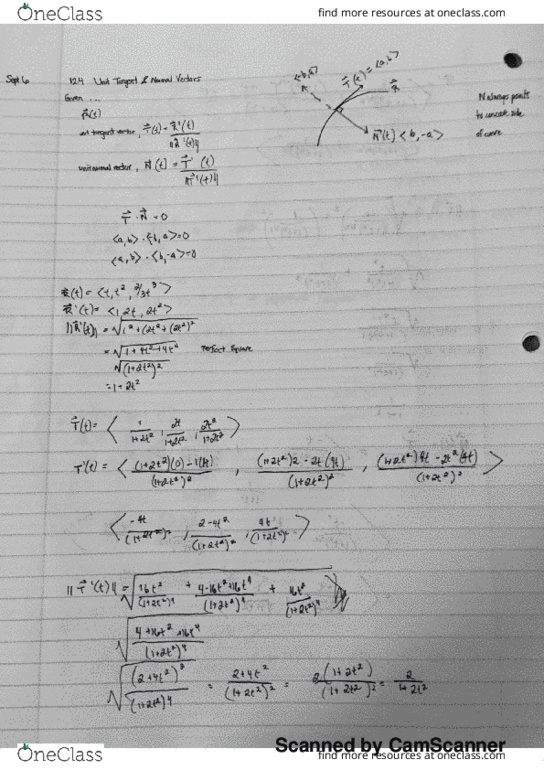 OneClass
find more resources at oneclass.com
Sept 6
12.4 Unit Tangent & Normal Vectors
Given ...
R⃗(t)
unit tangent vector, T⃗(t) = R⃗'(t) / ||R⃗'(t)||
unit normal vector, N⃗(t) = T⃗'(t) / ||T⃗'(t)||
<-b, a>
T⃗(t) = <a, b>
R⃗
N⃗(t) <b, -a>
N always points
to concave side
of curve
T⃗ · N⃗ = 0
<a, b> · <-b, a> = 0
<a, b> · <b, -a> = 0
R⃗(t) = <t, t², 2/3 t³>
R⃗'(t) = <1, 2t, 2t²>
||R⃗'(t)|| = √(1² + (2t)² + (2t²)²)
= √(1 + 4t² + 4t⁴) Perfect Square
√(1+2t²)²
= 1 + 2t²
T⃗(t) = < 1/(1+2t²), 2t/(1+2t²), 2t²/(1+2t²) >
T'(t) = < ((1+2t²)(0) - 1(4t))/(1+2t²)², ((1+2t²)2 - 2t(4t))/(1+2t²)², ((1+2t²)4t - 2t²(4t))/(1+2t²)² >
< -4t/(1+2t²)², (2-4t²)/(1+2t²)², 4t/(1+2t²)² >
||T⃗'(t)|| = √(16t²/(1+2t²)⁴ + (4-16t²+16t⁴)/(1+2t²)⁴ + 16t²/(1+2t²)⁴)
√((4+16t²+16t⁴)/(1+2t²)⁴)
√((2+4t²)²/(1+2t²)⁴) = (2+4t²)/(1+2t²)² = 2(1+2t²)/(1+2t²)² = 2/(1+2t²)
Scanned by CamScanner
OneClass
find more resources at oneclass.com